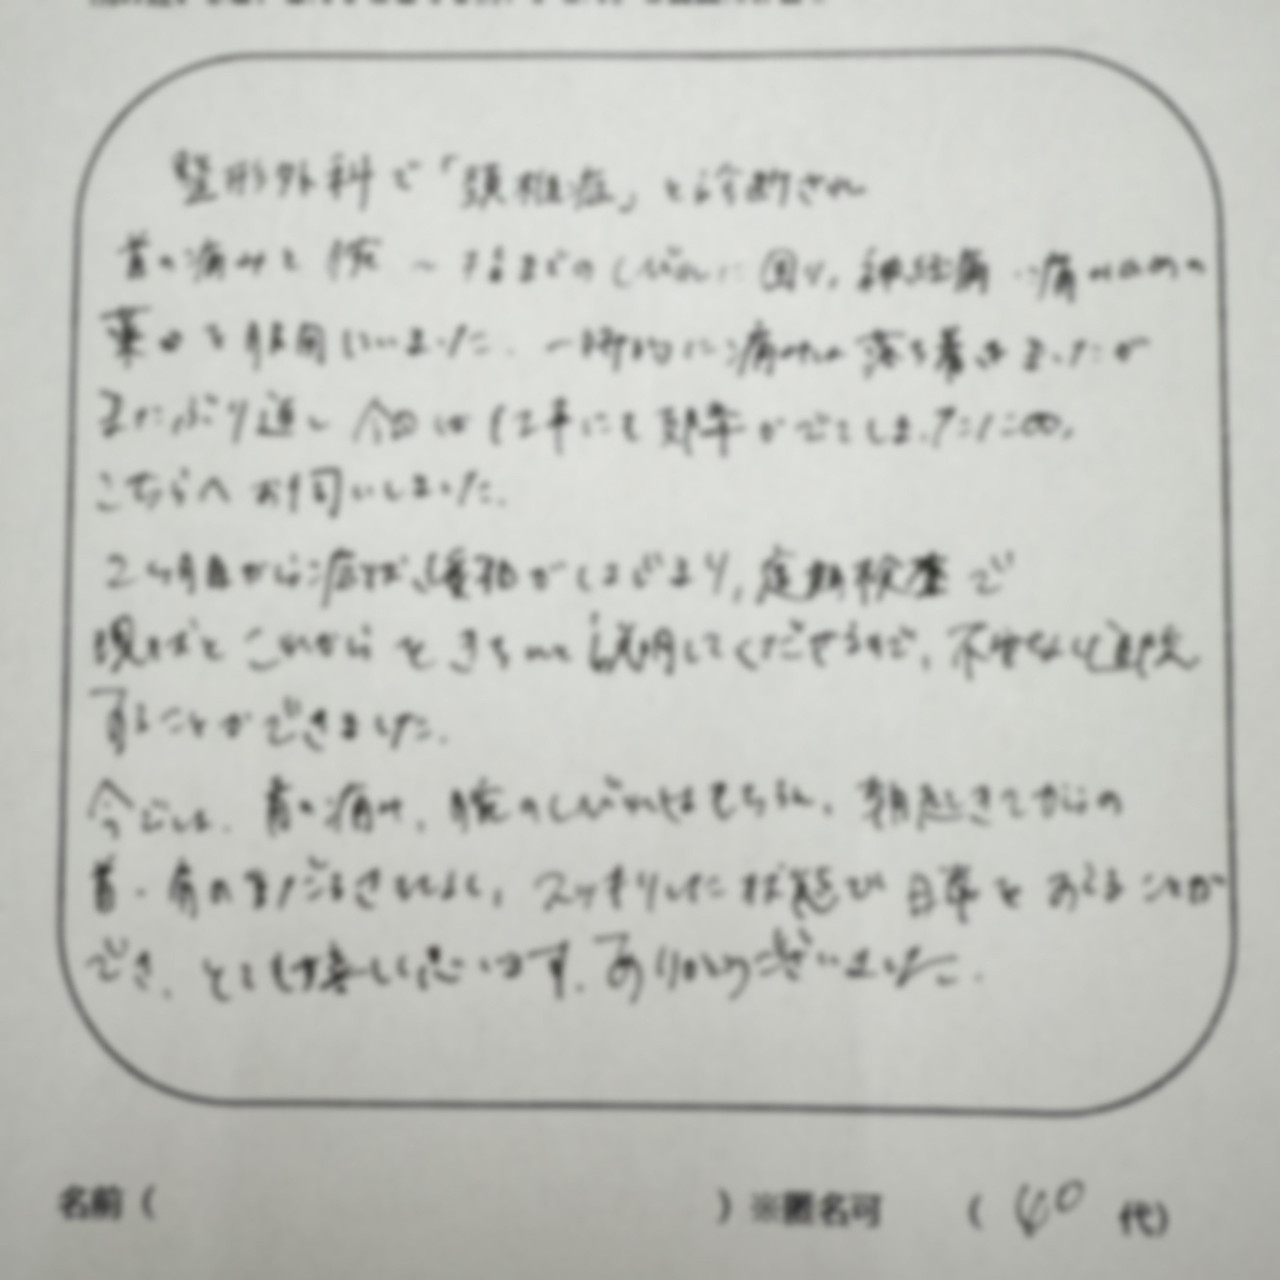 整形外科で「頚椎症」と診断され
首の痛みと腕 ~ までのしびれに困り、神経痛 痛み止めの
薬 を服用していました。一時的に痛みは落ち着きましたが
またぶり返し 今回は仕事にも支障がでてしまったため、
こちらへお伺いしました。
2ヶ月目から症状緩和がはじまり、定期検査で
現状とこれからをきちんと説明してくださるので、不安なく通院
することができました。
今では、首の痛み、腕のしびれはもちろん、朝起きてからの
首・肩の もなく、スッキリした状態で 日 を ることが
でき、とても嬉しく思います。ありがとうございました。
名前( )※匿名可 ( 40 代)